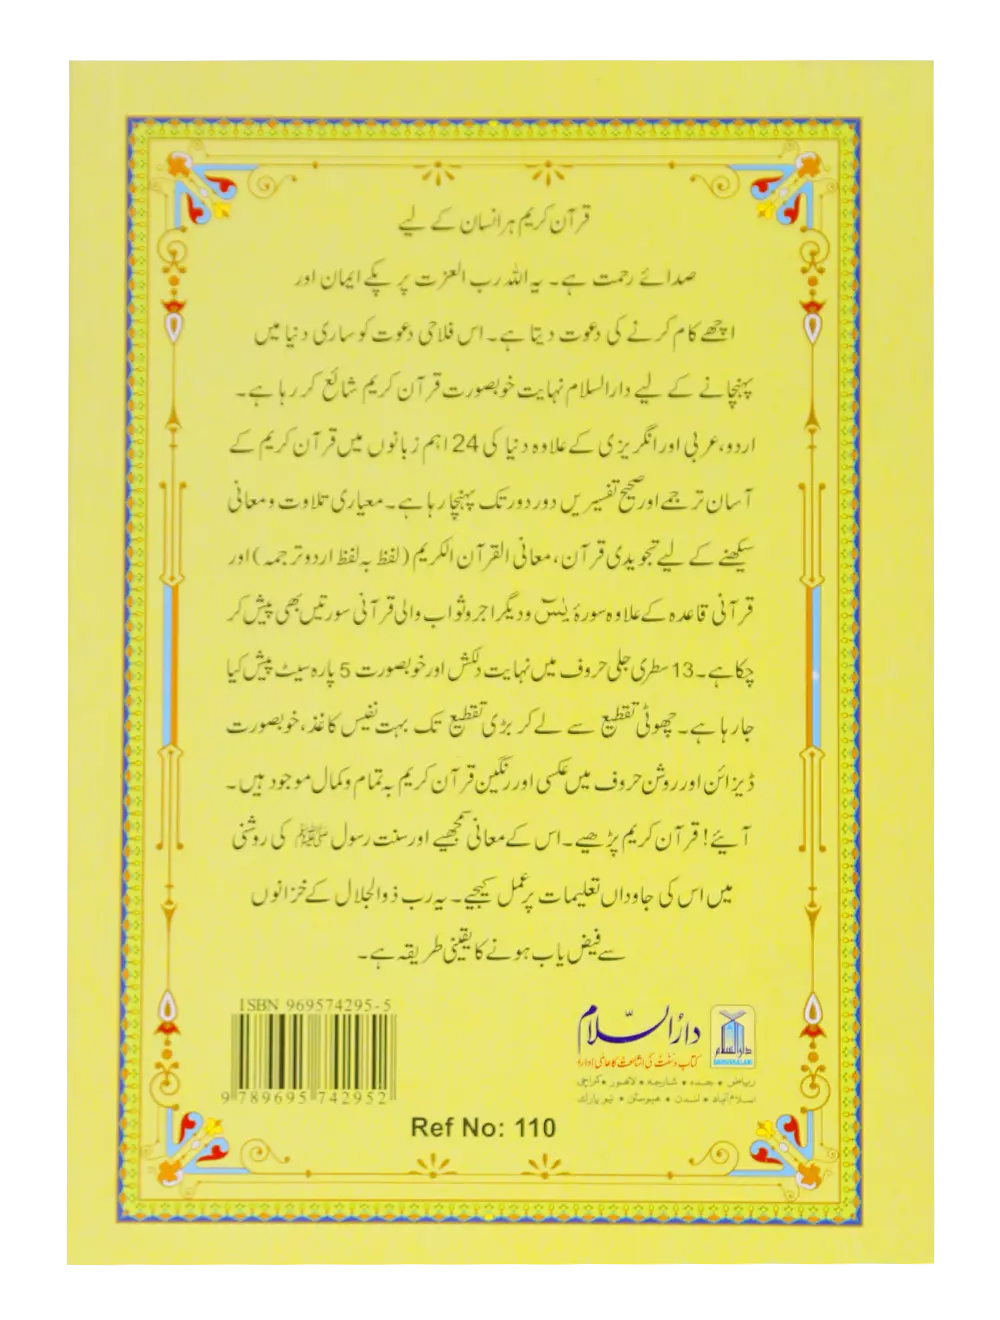 قرآن کریم ہر انسان کے لیے
صدائے رحمت ہے۔ یہ اللہ رب العزت پر پکے ایمان اور
اچھے کام کرنے کی دعوت دیتا ہے۔ اس فلاحی دعوت کو ساری دنیا میں
پہنچانے کے لیے دارالسلام نہایت خوبصورت قرآن کریم شائع کر رہا ہے۔
اردو، عربی اور انگریزی کے علاوہ دنیا کی 24 اہم زبانوں میں قرآن کریم کے
آسان ترجمے اور صحیح تفسیریں دور دور تک پہنچا رہا ہے۔ معیاری تلاوت و معانی
سیکھنے کے لیے تجویدی قرآن، معانی القرآن الکریم (لفظ بہ لفظ اردو ترجمہ) اور
قرآنی قاعدہ کے علاوہ سورۂ یٰسٓ و دیگر اجر و ثواب والی قرآنی سورتیں بھی پیش کر
چکا ہے۔ 13 سطری جلی حروف میں نہایت دلکش اور خوبصورت 5 پارہ سیٹ پیش کیا
جا رہا ہے۔ چھوٹی تقطیع سے لے کر بڑی تقطیع تک بہت نفیس کاغذ، خوبصورت
ڈیزائن اور روشن حروف میں عکسی اور رنگین قرآن کریم بہ تمام و کمال موجود ہیں۔
آیئے! قرآن کریم پڑھیے۔ اس کے معانی سمجھیے اور سنت رسول ﷺ کی روشنی
میں اس کی جاوداں تعلیمات پر عمل کیجیے۔ یہ رب ذوالجلال کے خزانوں
سے فیض یاب ہونے کا یقینی طریقہ ہے۔
دارالسّلام
کتاب و سنت کی اشاعت کا عالمی ادارہ
ریاض • جدہ • شارجہ • لاہور • کراچی
اسلام آباد • لندن • ہیوسٹن • نیو یارک
دارالسلام
DARUSSALAM
ISBN 969574295-5
9 789695 742952
Ref No: 110